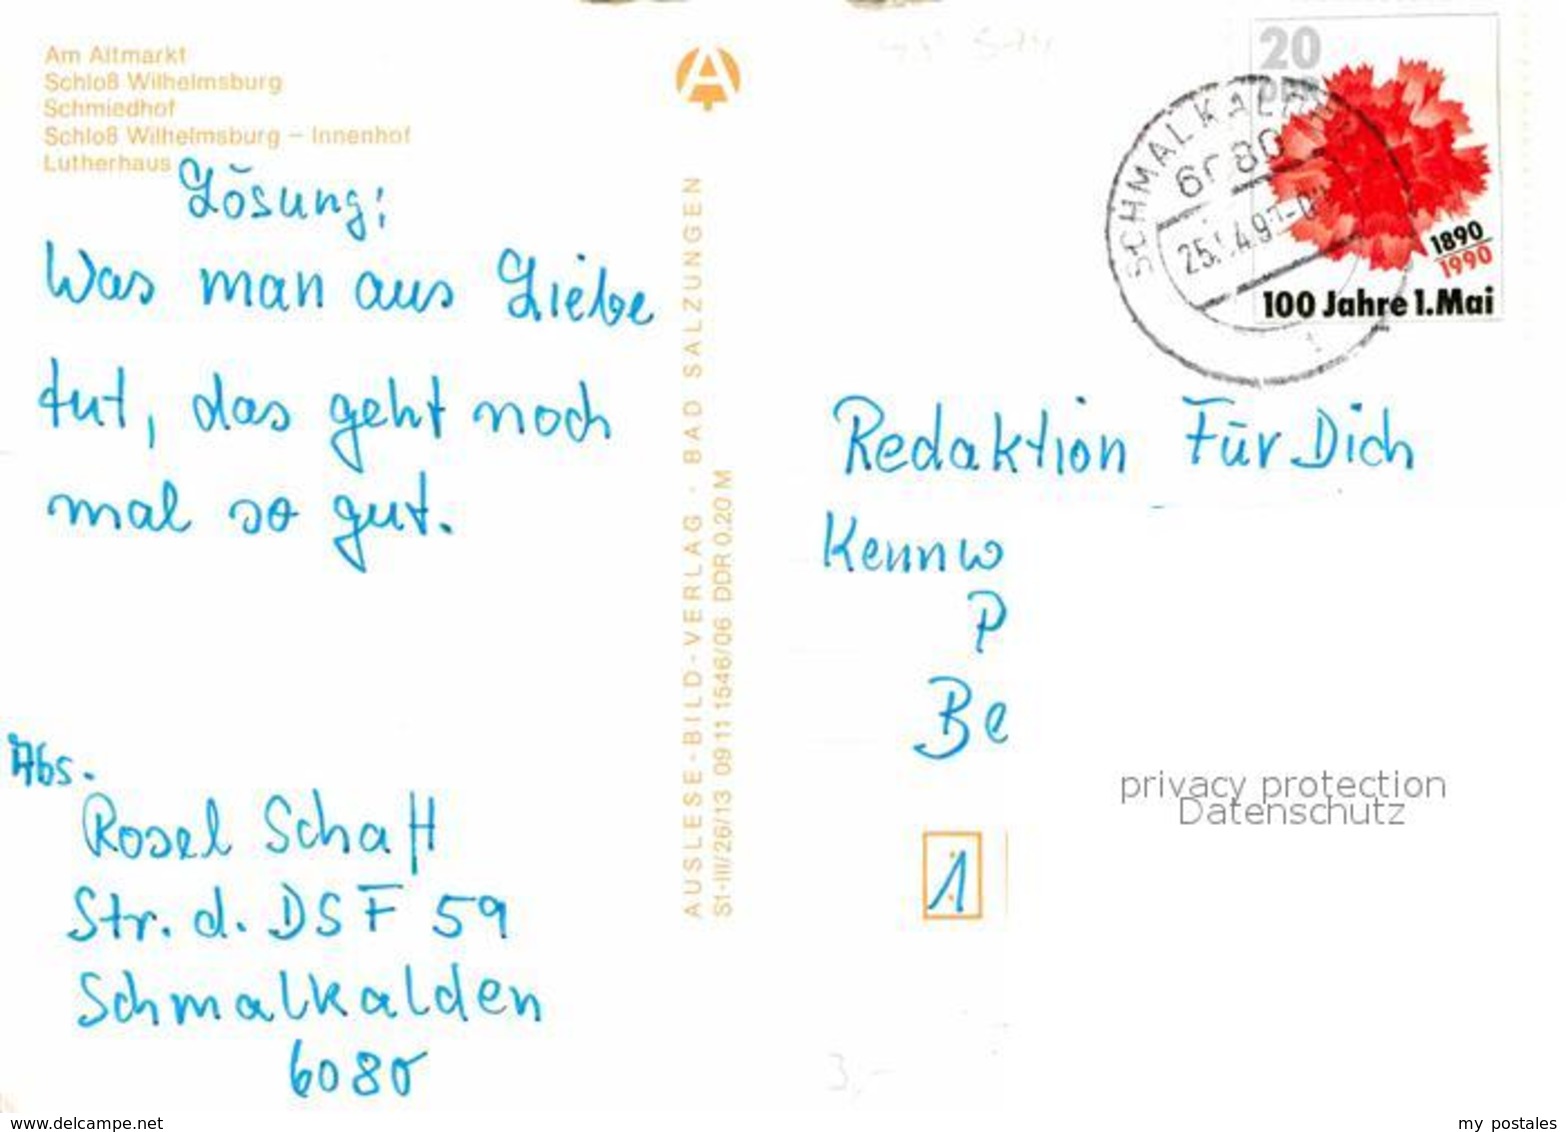 Am Altmarkt
Schloß Wilhelmsburg
Schmiedhof
Schloß Wilhelmsburg – Innenhof
Lutherhaus
Lösung:
Was man aus Liebe
tut, das geht noch
mal so gut.
Abs.
Rosel Schaft
Str. d. DSF 59
Schmalkalden
6080
AUSLESE-BILD-VERLAG · BAD SALZUNGEN
St-III/26/13 09 11 1546/06 DDR 0,20 M
20
DDR
1890
1990
100 Jahre 1.Mai
SCHMALKALDEN
6080
Redaktion Für Dich
Kennw
P
Be
1
privacy protection
Datenschutz
3,-
www.delcampe.net
my postales